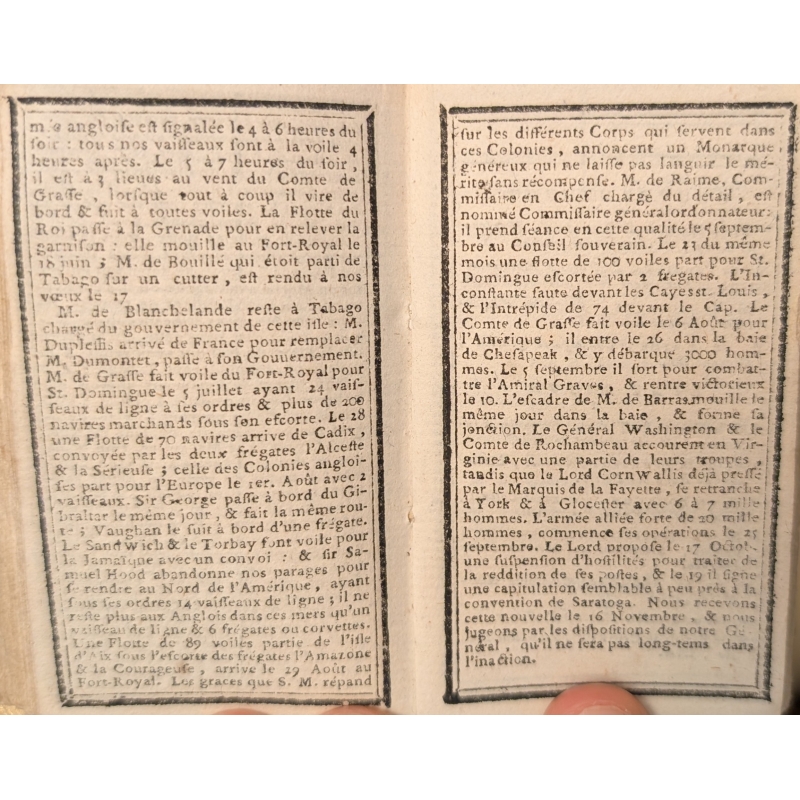 mée angloise est signalée le 4 à 6 heures du
soir : tous nos vaisseaux sont à la voile 4
heures après. Le 5 à 7 heures du soir ,
il est à 3 lieues au vent du Comte de
Grasse , lorsque tout à coup il vire de
bord & fuit à toutes voiles. La Flotte du
Roi passe à la Grenade pour en relever la
garnison : elle mouille au Fort-Royal le
18 juin ; M. de Bouillé qui étoit parti de
Tabago sur un cutter , est rendu à nos
vœux le 17
M. de Blanchelande reste à Tabago
chargé du gouvernement de cette isle : M.
Duplessis arrivé de France pour remplacer
M. Dumontet, passe à son Gouuernement.
M. de Grasse fait voile du Fort-Royal pour
St. Domingue le 5 juillet ayant 24 vais-
seaux de ligne à ses ordres & plus de 200
navires marchands sous son escorte. Le 28
une Flotte de 70 navires arrive de Cadix ,
convoyée par les deux frégates l'Alceste
& la Sérieuse ; celle des Colonies angloi-
ses part pour l'Europe le 1er. Août avec 2
vaisseaux. Sir George passe à bord du Gi-
braltar le même jour , & fait la même rou-
te ; Vaughan le suit à bord d'une frégate.
Le Sandwich & le Torbay font voile pour
la Jamaïque avec un convoi : & sir Sa-
muel Hood abandonne nos parages pour
se rendre au Nord de l'Amérique , ayant
sous ses ordres 14 vaisseaux de ligne ; il ne
reste plus aux Anglois dans ces mers qu'un
vaisseau de ligne & 6 frégates ou corvettes.
Une Flotte de 89 voiles partie de l'isle
d'Aix sous l'escorte des frégates l'Amazone
& la Courageuse , arrive le 29 Août au
Fort-Royal. Les graces que S. M. répand
sur les différents Corps qui servent dans
ces Colonies , annoncent un Monarque
généreux qui ne laisse pas languir le mé-
rite sans récompense. M. de Raime, Com-
missaire en Chef chargé du détail , est
nommé Commissaire général ordonnateur:
il prend séance en cette qualité le 5 septem-
bre au Conseil souverain. Le 23 du même
mois une flotte de 100 voiles part pour St.
Domingue escortée par 2 frégates. L'In-
constante saute devant les Cayes st. Louis ,
& l'Intrépide de 74 devant le Cap. Le
Comte de Grasse fait voile le 6 Août pour
l'Amérique ; il entre le 26 dans la baie
de Chesapeak , & y débarque 3000 hom-
mes. Le 5 septembre il sort pour combat-
tre l'Amiral Graves , & rentre victorieux
le 10. L'escadre de M. de Barras mouille le
même jour dans la baie , & forme sa
jonction. Le Général Washington & le
Comte de Rochambeau accourent en Vir-
ginie avec une partie de leurs troupes ,
tandis que le Lord Cornwallis déjà pressé
par le Marquis de la Fayette , se retranche
à York & à Glocester avec 6 à 7 mille
hommes. L'armée alliée forte de 20 mille
hommes , commence ses opérations le 25
septembre. Le Lord propose le 17 Octob.
une suspension d'hostilités pour traiter de
la reddition de ses postes , & le 19 il signe
une capitulation semblable à peu près à la
convention de Saratoga. Nous recevons
cette nouvelle le 16 Novembre , & nous
jugeons par les dispositions de notre Gé-
néral , qu'il ne sera pas long-tems dans
l'inaction.